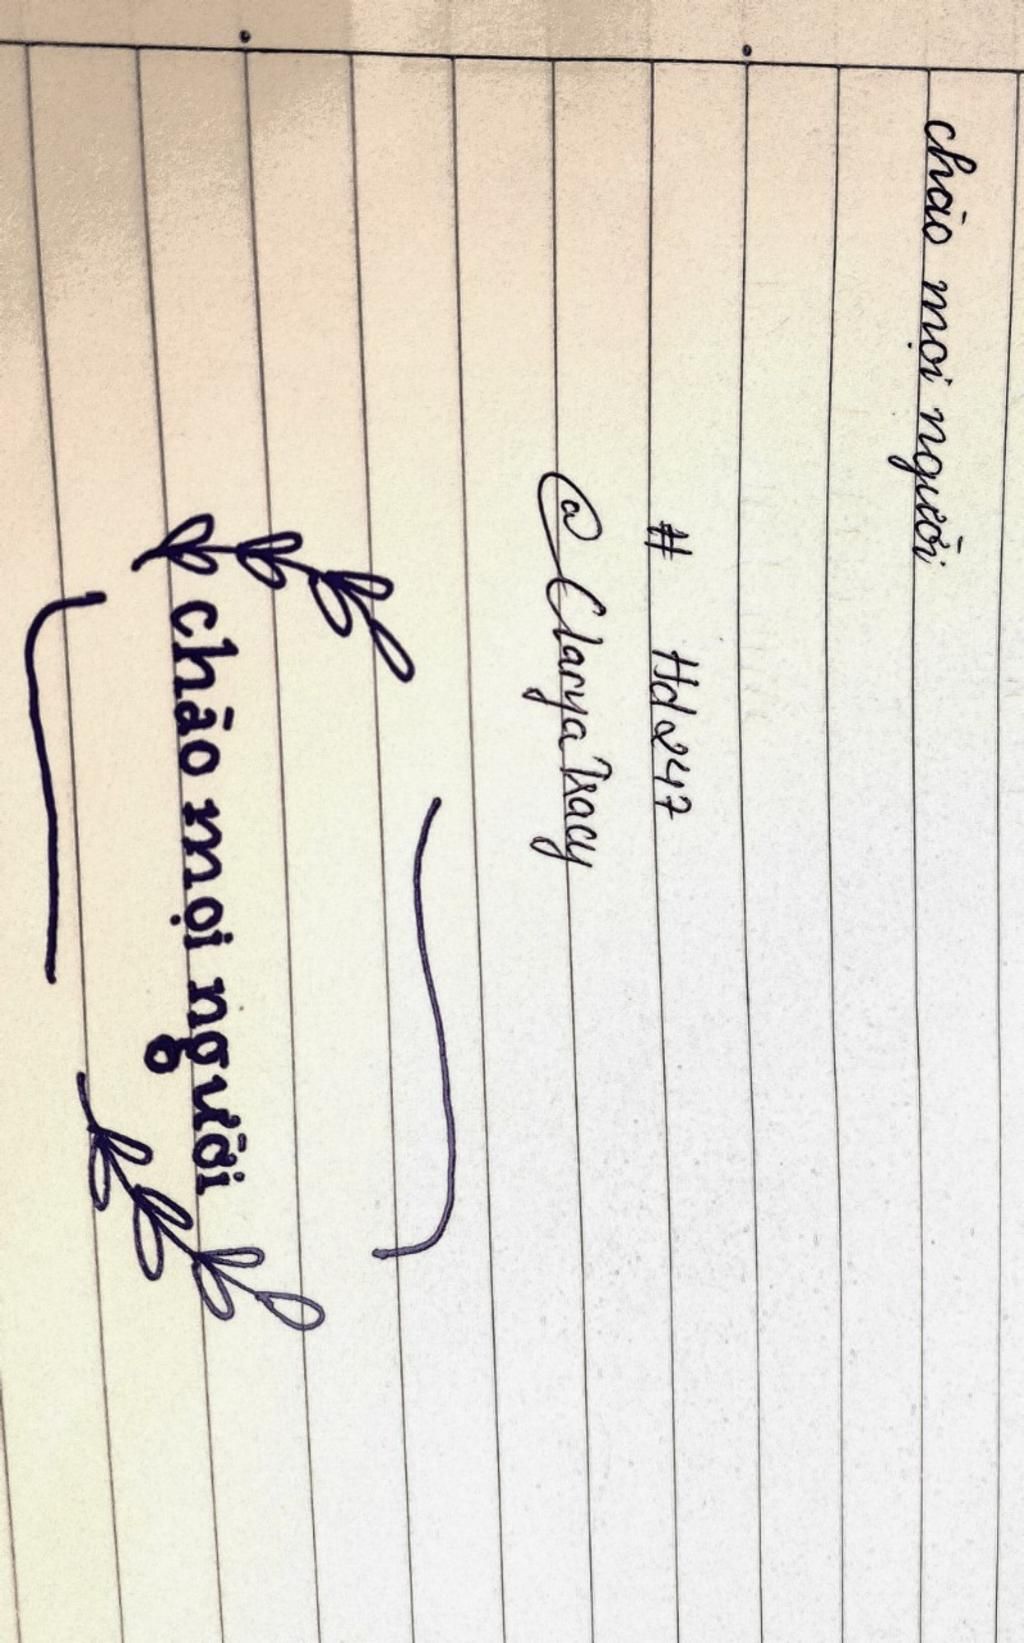 chào mọi người
# Hd247
@ClaryaTracy
chào mọi người